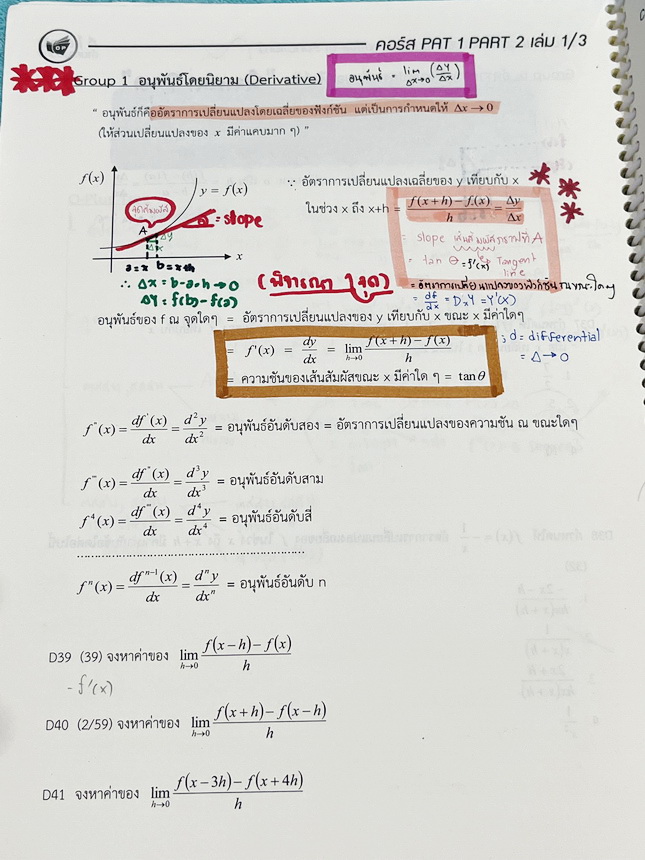 OP
คอร์ส PAT 1 PART 2 เล่ม 1/3
Group 1 อนุพันธ์โดยนิยาม (Derivative) อนุพันธ์ = lim Δx→0 (Δy/Δx)
" อนุพันธ์ก็คืออัตราการเปลี่ยนแปลงโดยเฉลี่ยของฟังก์ชัน แต่เป็นการกำหนดให้ Δx → 0
(ให้ส่วนเปลี่ยนแปลงของ x มีค่าแคบมาก ๆ) "
f(x)
y = f(x)
A
= slope
Δy
Δx
a=x b=x+h
x
∴ Δx = b-a = h → 0
Δy = f(b)-f(a)
∵ อัตราการเปลี่ยนแปลงเฉลี่ยของ y เทียบกับ x
ในช่วง x ถึง x+h = (f(x+h) − f(x))/h = Δy/Δx
= slope เส้นสัมผัสกราฟที่ A
= tan θ = f'(x) Tangent line
(พิจารณา 1 จุด)
= อัตราการเปลี่ยนแปลงของฟังก์ชัน ณ ขณะใดๆ
= df/dx = DxY = Y'(x)
อนุพันธ์ของ f ณ จุดใดๆ = อัตราการเปลี่ยนแปลงของ y เทียบกับ x ขณะ x มีค่าใดๆ
= f'(x) = dy/dx = lim h→0 (f(x+h) − f(x))/h
; d = differential
= Δ → 0
= ความชันของเส้นสัมผัสขณะ x มีค่าใด ๆ = tan θ
f''(x) = df'(x)/dx = d²y/dx² = อนุพันธ์อันดับสอง = อัตราการเปลี่ยนแปลงของความชัน ณ ขณะใดๆ
f'''(x) = df''(x)/dx = d³y/dx³ = อนุพันธ์อันดับสาม
f⁴(x) = df'''(x)/dx = d⁴y/dx⁴ = อนุพันธ์อันดับสี่
............................................................
fⁿ(x) = dfⁿ⁻¹(x)/dx = dⁿy/dxⁿ = อนุพันธ์อันดับ n
D39 (39) จงหาค่าของ lim h→0 (f(x−h) − f(x))/h
- f'(x)
D40 (2/59) จงหาค่าของ lim h→0 (f(x+h) − f(x−h))/h
D41 จงหาค่าของ lim h→0 (f(x−3h) − f(x+4h))/h